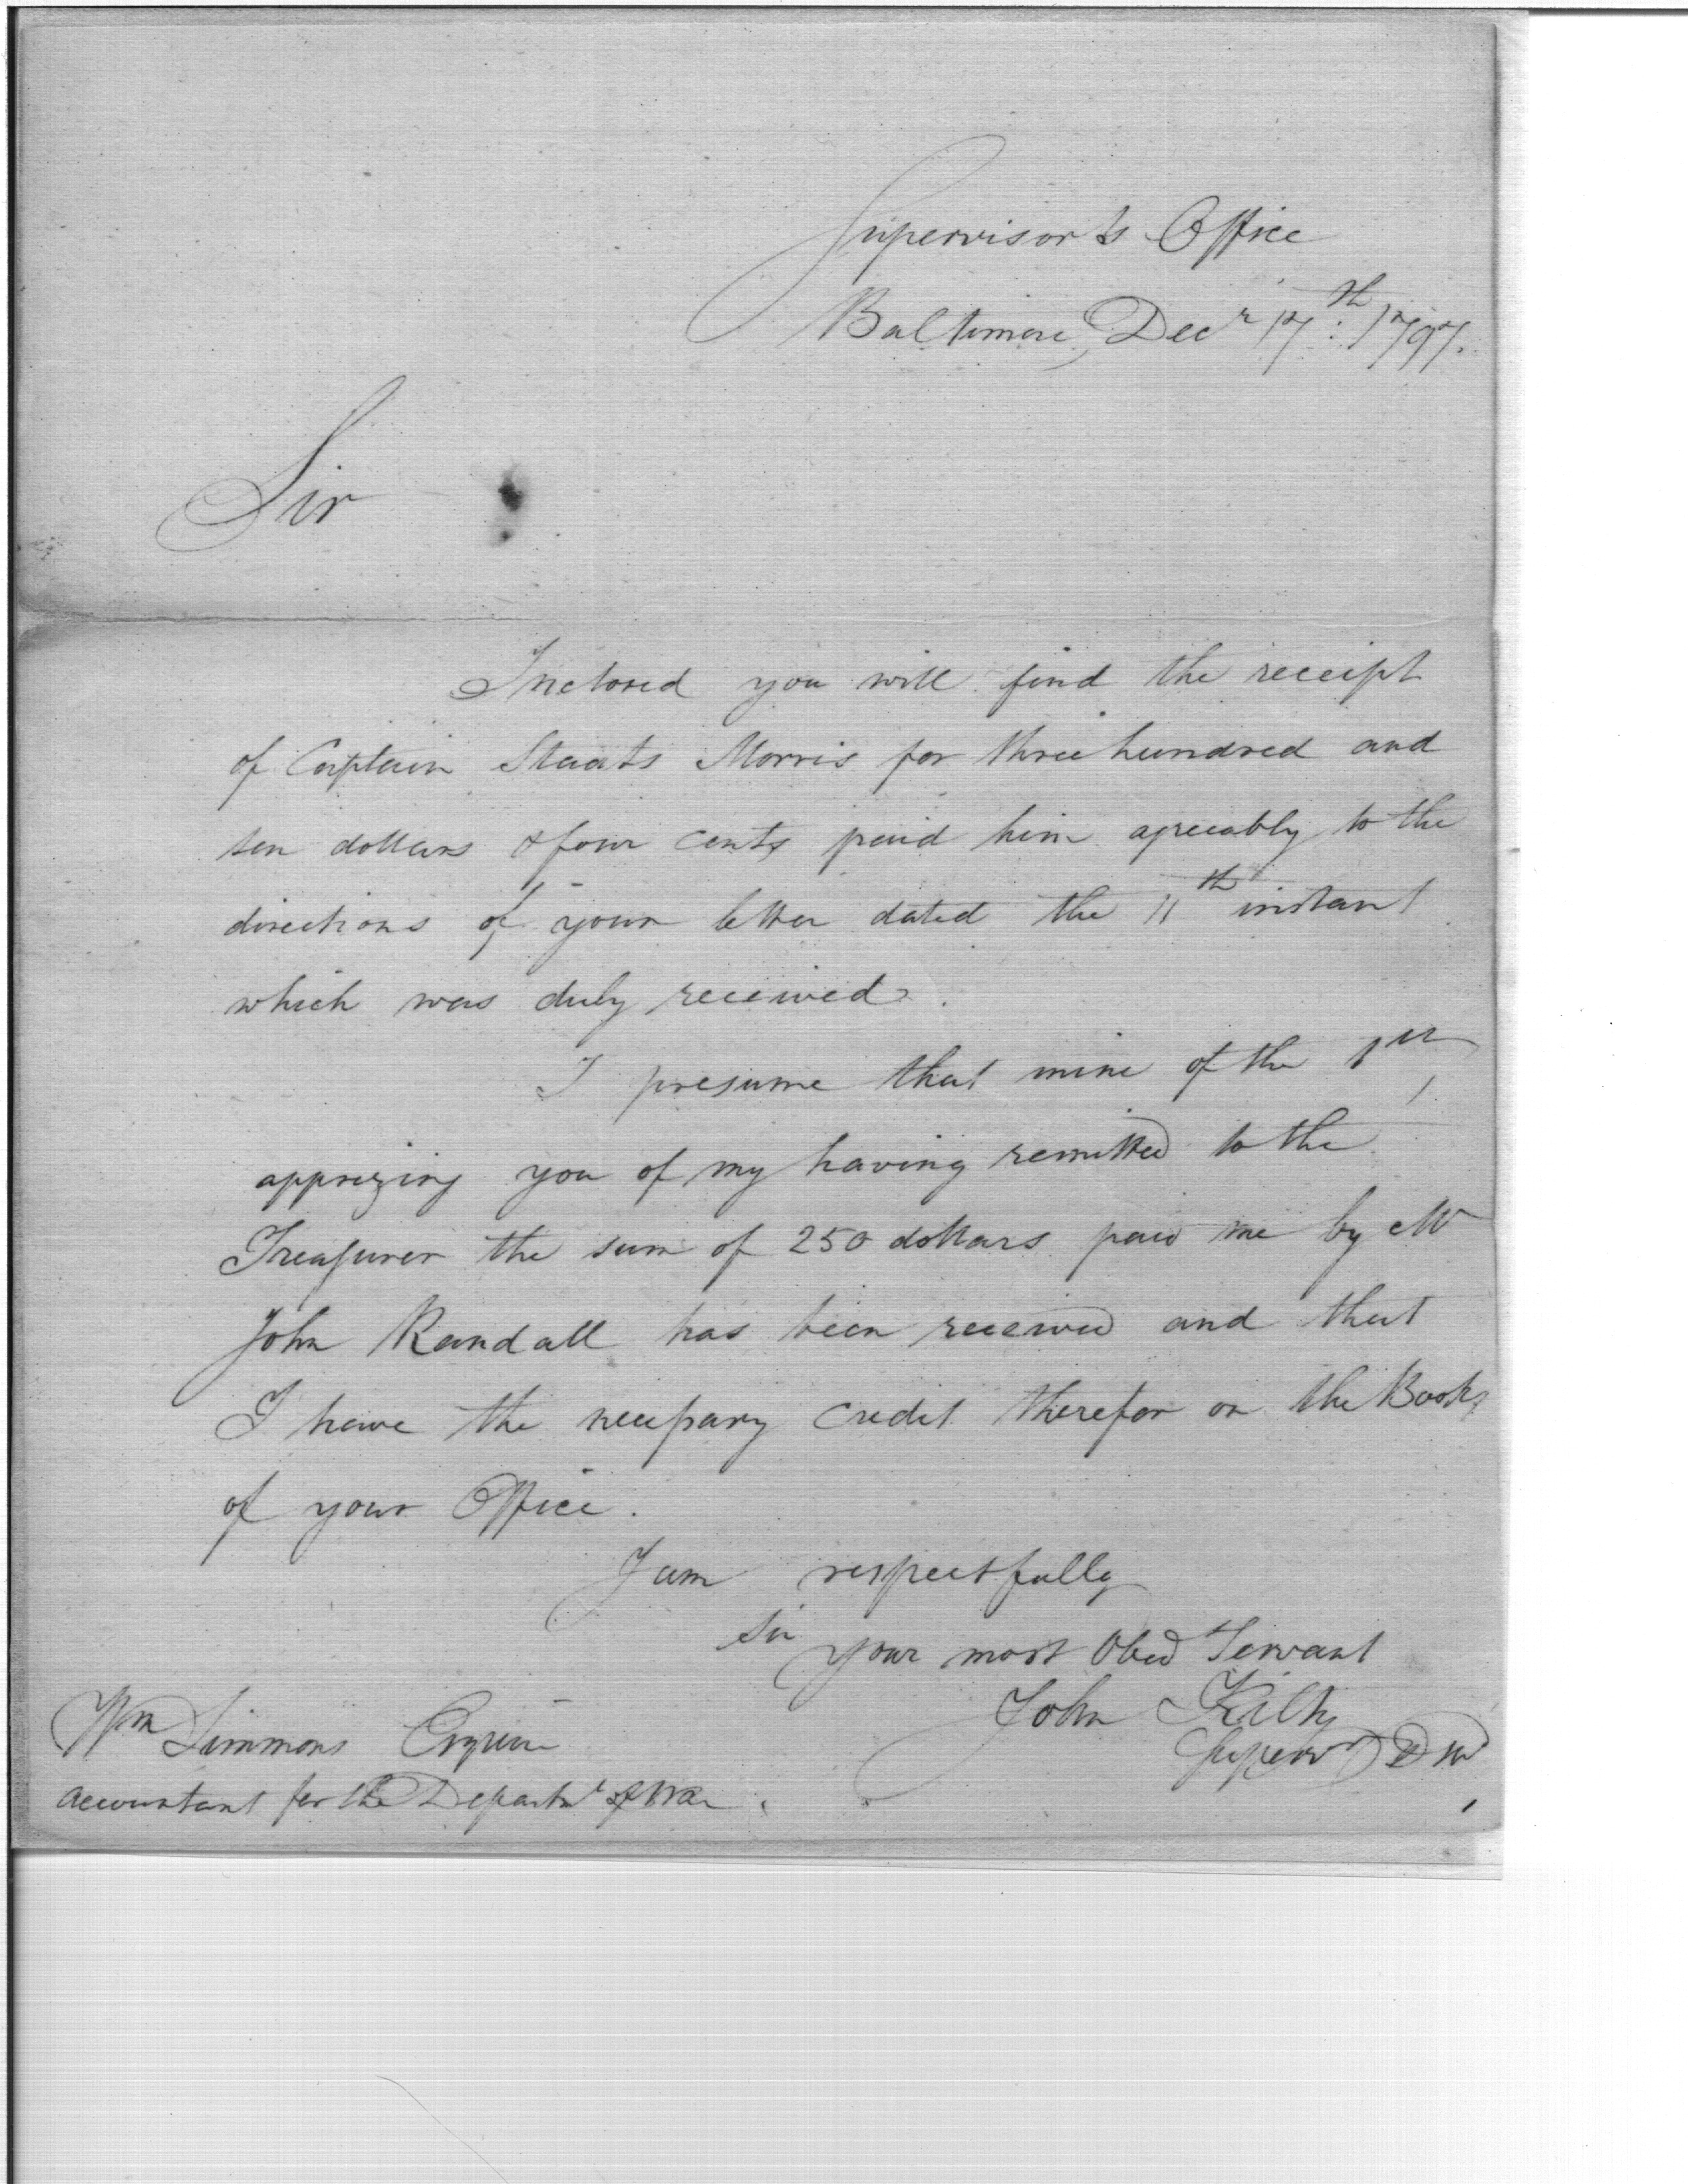 Supervisor's Office
Baltimore, Decr 17th: 1797.
Sir
Inclosed you will find the receipt
of Captain Staats Morris for three hundred and
ten dollars & four cents paid him agreeably to the
directions of your letter dated the 11th instant
which was duly received.
I presume that mine of the 1st
apprizing you of my having remitted to the
Treasurer the sum of 250 dollars paid me by Mr
John Randall has been received and that
I have the necessary credit therefor on the Books
of your Office.
I am respectfully
Sir
your most Obed Servant
John Kilty
Superv D Md
Wm Simmons Esquire
Accountant for the Departmt of War.